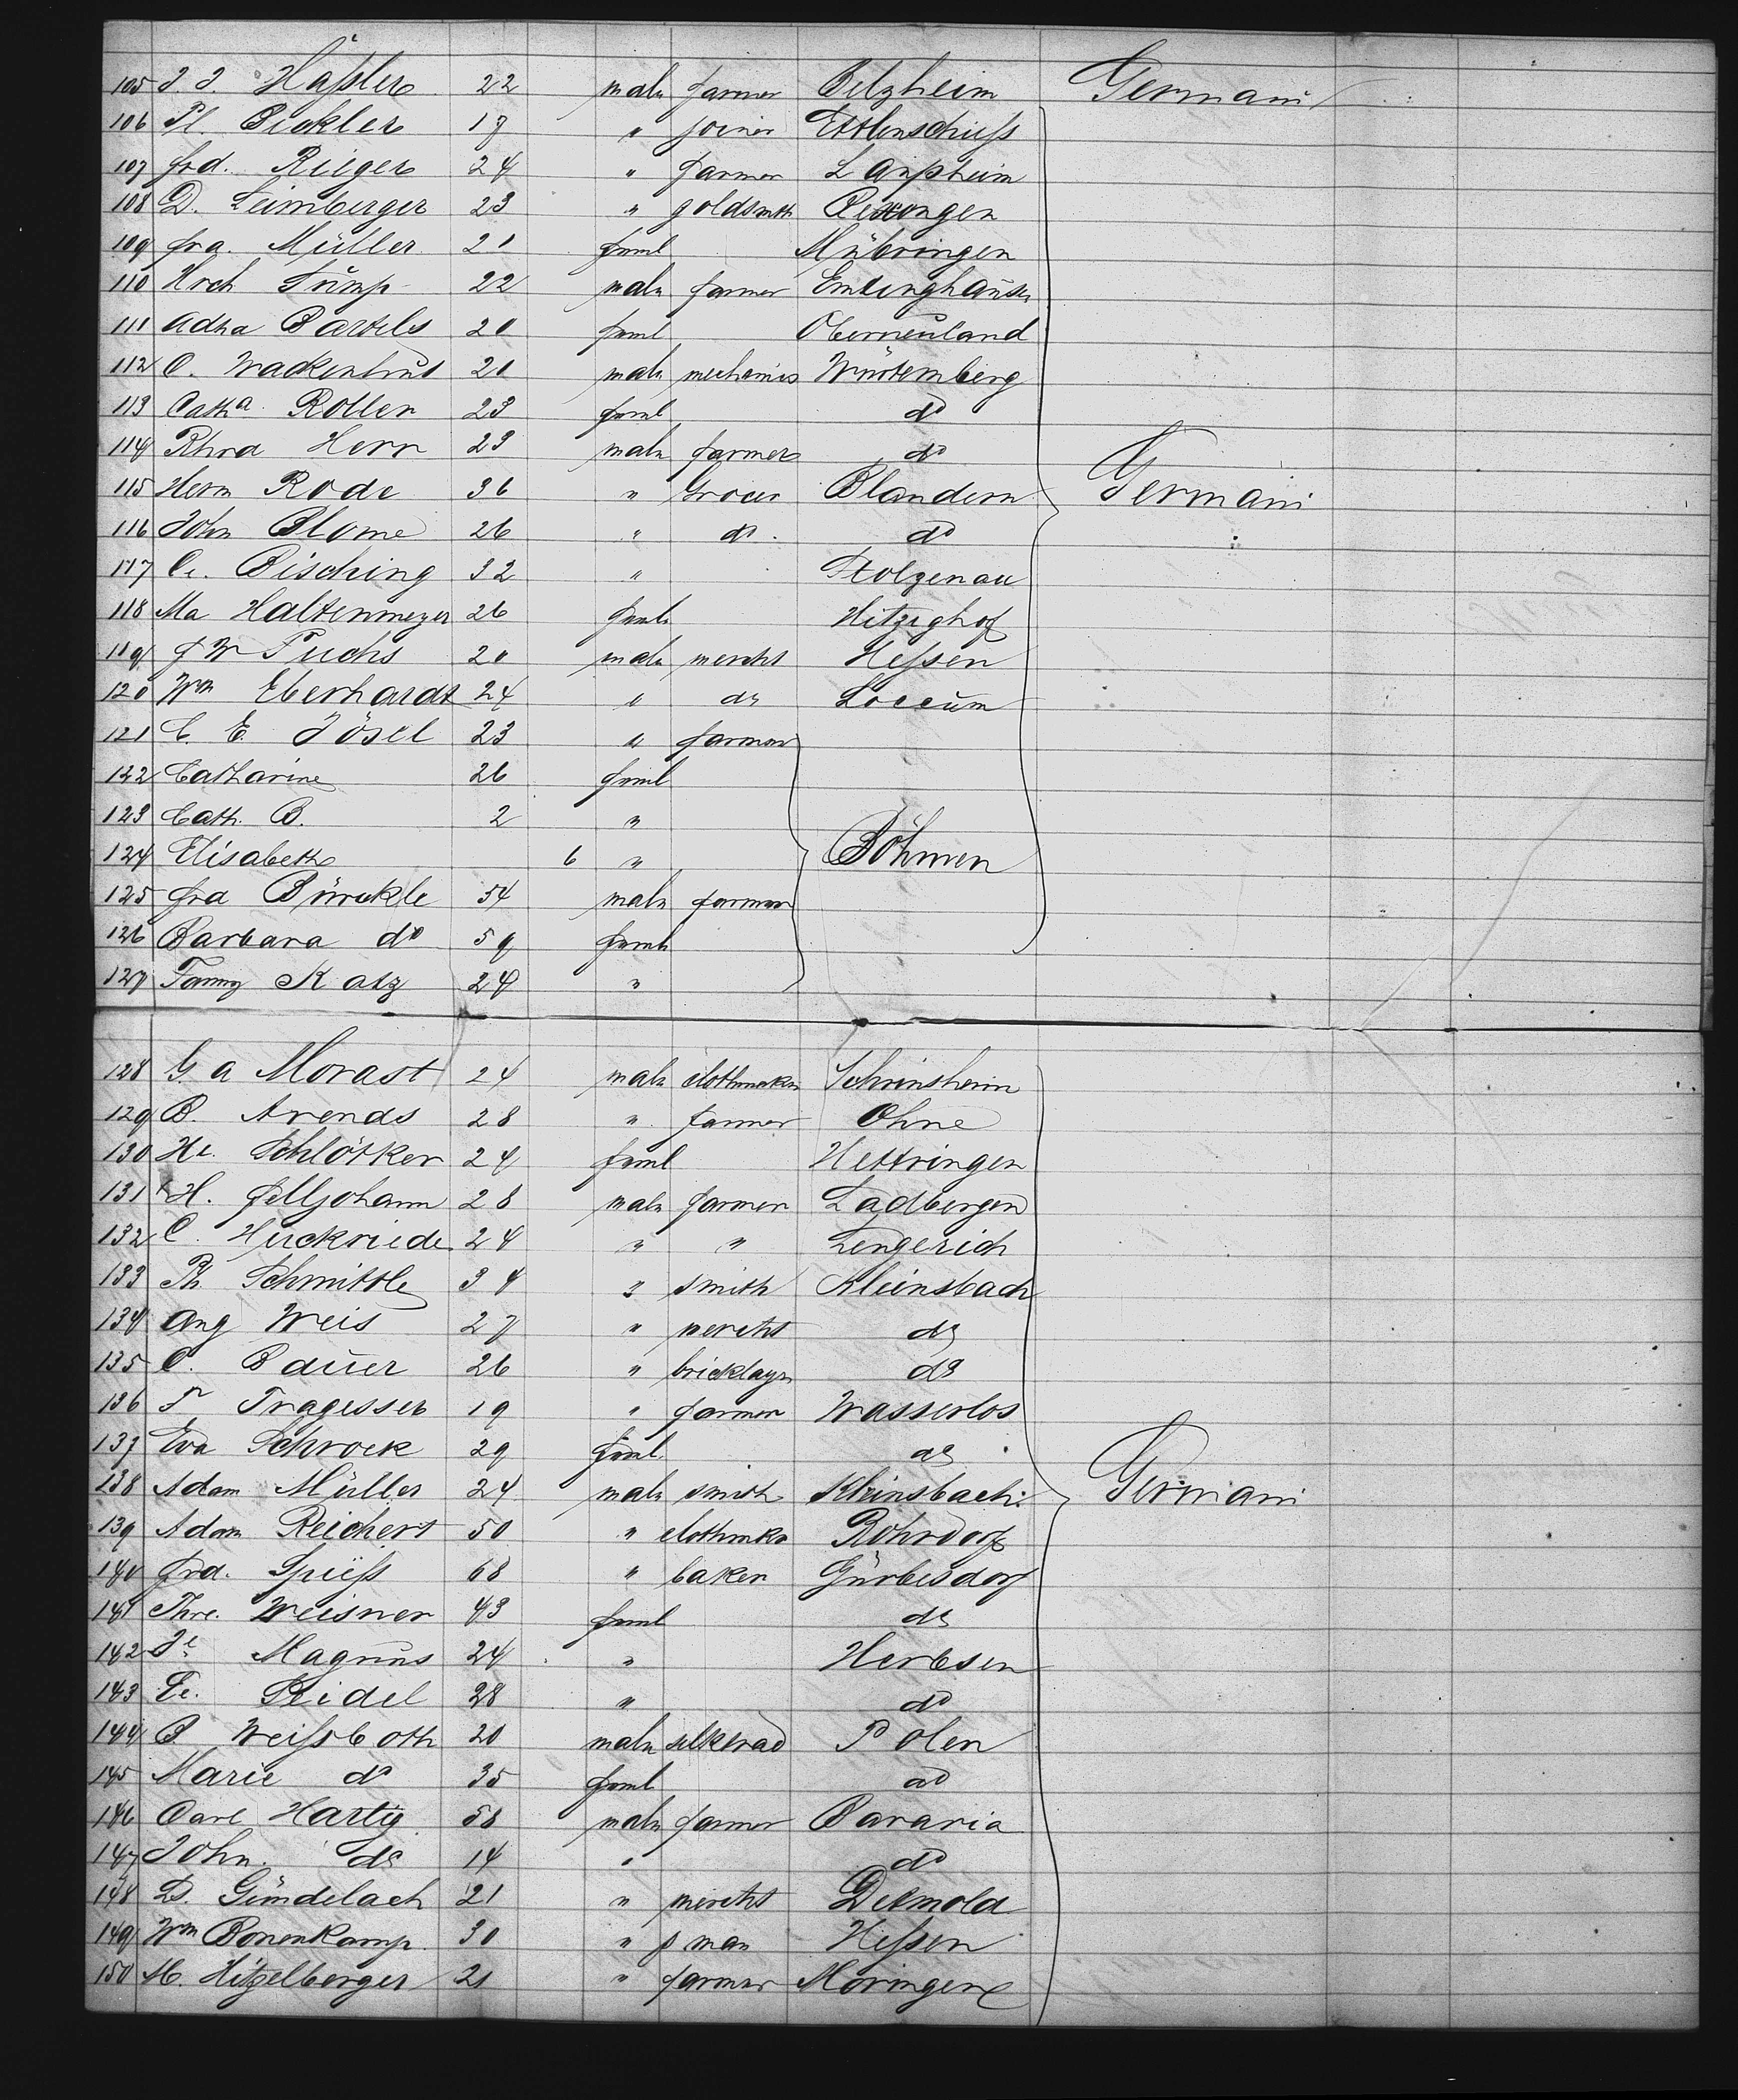 105 J. J. Haßler 22 male farmer Belzheim Germani
106 Pl. Bickler 17 " joiner Ettlenschieß
107 frd. Rieger 24 " farmer Laupheim
108 D. Leimberger 23 " goldsmth
109 fra. Müller 21 feml Mübringen
110 Hrch Trump 22 male farmer Emtinghausen
111 Adha Bartels 20 feml Oberneuland
112 C. Wackenhut 20 male mechanics Würtemberg
113 Catha Roller 23 feml do
114 Rhrd Herr 23 male farmer do
115 Herm Rode 36 " Grocer Blandern Germani
116 John Blome 26 " do do
117 Ce. Bisching 32 " Stolzenau
118 Ma Haltenmeyer 26 feml Hitzighof
119 f W Fuchs 20 male merchts Heßen
120 Wm Eberhardt 24 " do Loccum
121 C. E. Jösel 23 " farmer
122 Catharine 26 feml
123 Cath. B. 2 "
124 Elisabeth 6 " Böhmen
125 fra Bürckle 54 male farmer
126 Barbara do 59 feml
127 Fanny Katz 24 "
128 G. a Morast 24 male clothmaker Schrinsheim
129 B. Arends 28 " farmer Ohne
130 He. Schlötker 24 feml Hettringen
131 H. Felljohann 28 male farmer Ladbergen
132 C. Huckriede 24 " " Lengerich
133 Ph. Schmittle 34 " smith Kleinsbach
134 Aug Weis 27 " merchts do
135 C. Bauer 26 " bricklayr do
136 Fr Tragesser 19 " farmer Wasserlos
137 Eva Schrock 29 feml do
138 Adam Müller 24 male smith Kleinsbach Germani
139 Adam Reichert 50 " clothmkr Röhrdorf
140 frd. Spieß 68 " baker Gürbesdorf
141 Thre. Weisner 43 feml do
142 Je Magnus 24 " Herbsen
143 Le. Seidel 28 " do
144 B Weißboth 20 male Polen
145 Marie do 35 feml do
146 Carl Hartig 58 male farmer Bavaria
147 John do 14 " do
148 Ds. Gundelach 21 " merchts Detmold
149 Wm Bonenkamp 30 " p man Heßen
150 M. Hitzelberger 21 " farmer Moringen